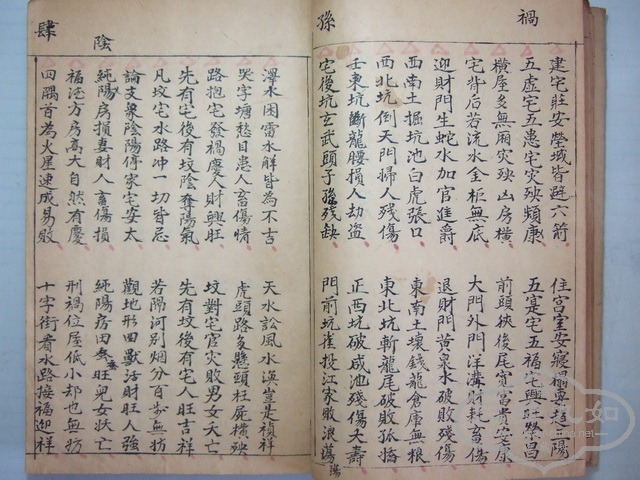 禍
孫
建宅莊安塋城皆避六箭
住宮室安寢
五虛宅五患宅灾殃頻康
五寔宅五福宅興旺榮昌
橫屋多無廂灾殃凶房橫
前頭狹後尾寬富貴安康
宅背后若流水金柜無底
大門外門洋溝財耗畜傷
迎財門生蛇水加官進爵
退財門黄泉水破敗殘傷
西南土掘坑池白虎張口
東南土壞錢龍倉庫無根
西北坑倒天門掃人殘傷
東北坑斬龍尾破敗孤
壬東坑斷龍腰損人劫盜
正西坑破咸池殘傷夭壽
宅後坑玄武頭子孫殘缺
門前坑雀投江家敗浪蕩
陽
陰
肆
澤水困雷水解皆為不吉
天水訟風水渙豈是禎祥
哭字塘愁目患人畜傷情
虎頭路多懸頭枉屍橫殃
路抱宅發禍慶人財興旺
坟對宅官灾敗男女夭亡
先有宅後有坟陰奪陽氣
先有坟後有宅人旺吉祥
凡坟宅水路冲一切皆忌
若隔河别烟分百步無妨
論支象陰陽停家宅安太
觀地形田獸活財旺人強
純陽房損妻財人畜傷損
純陽房田蚕旺兒女夭亡
福法方房高大自然有慶
刑禍位屋低小却也無妨
四隅首為火星速成易敗
十字街看水路接福迎祥